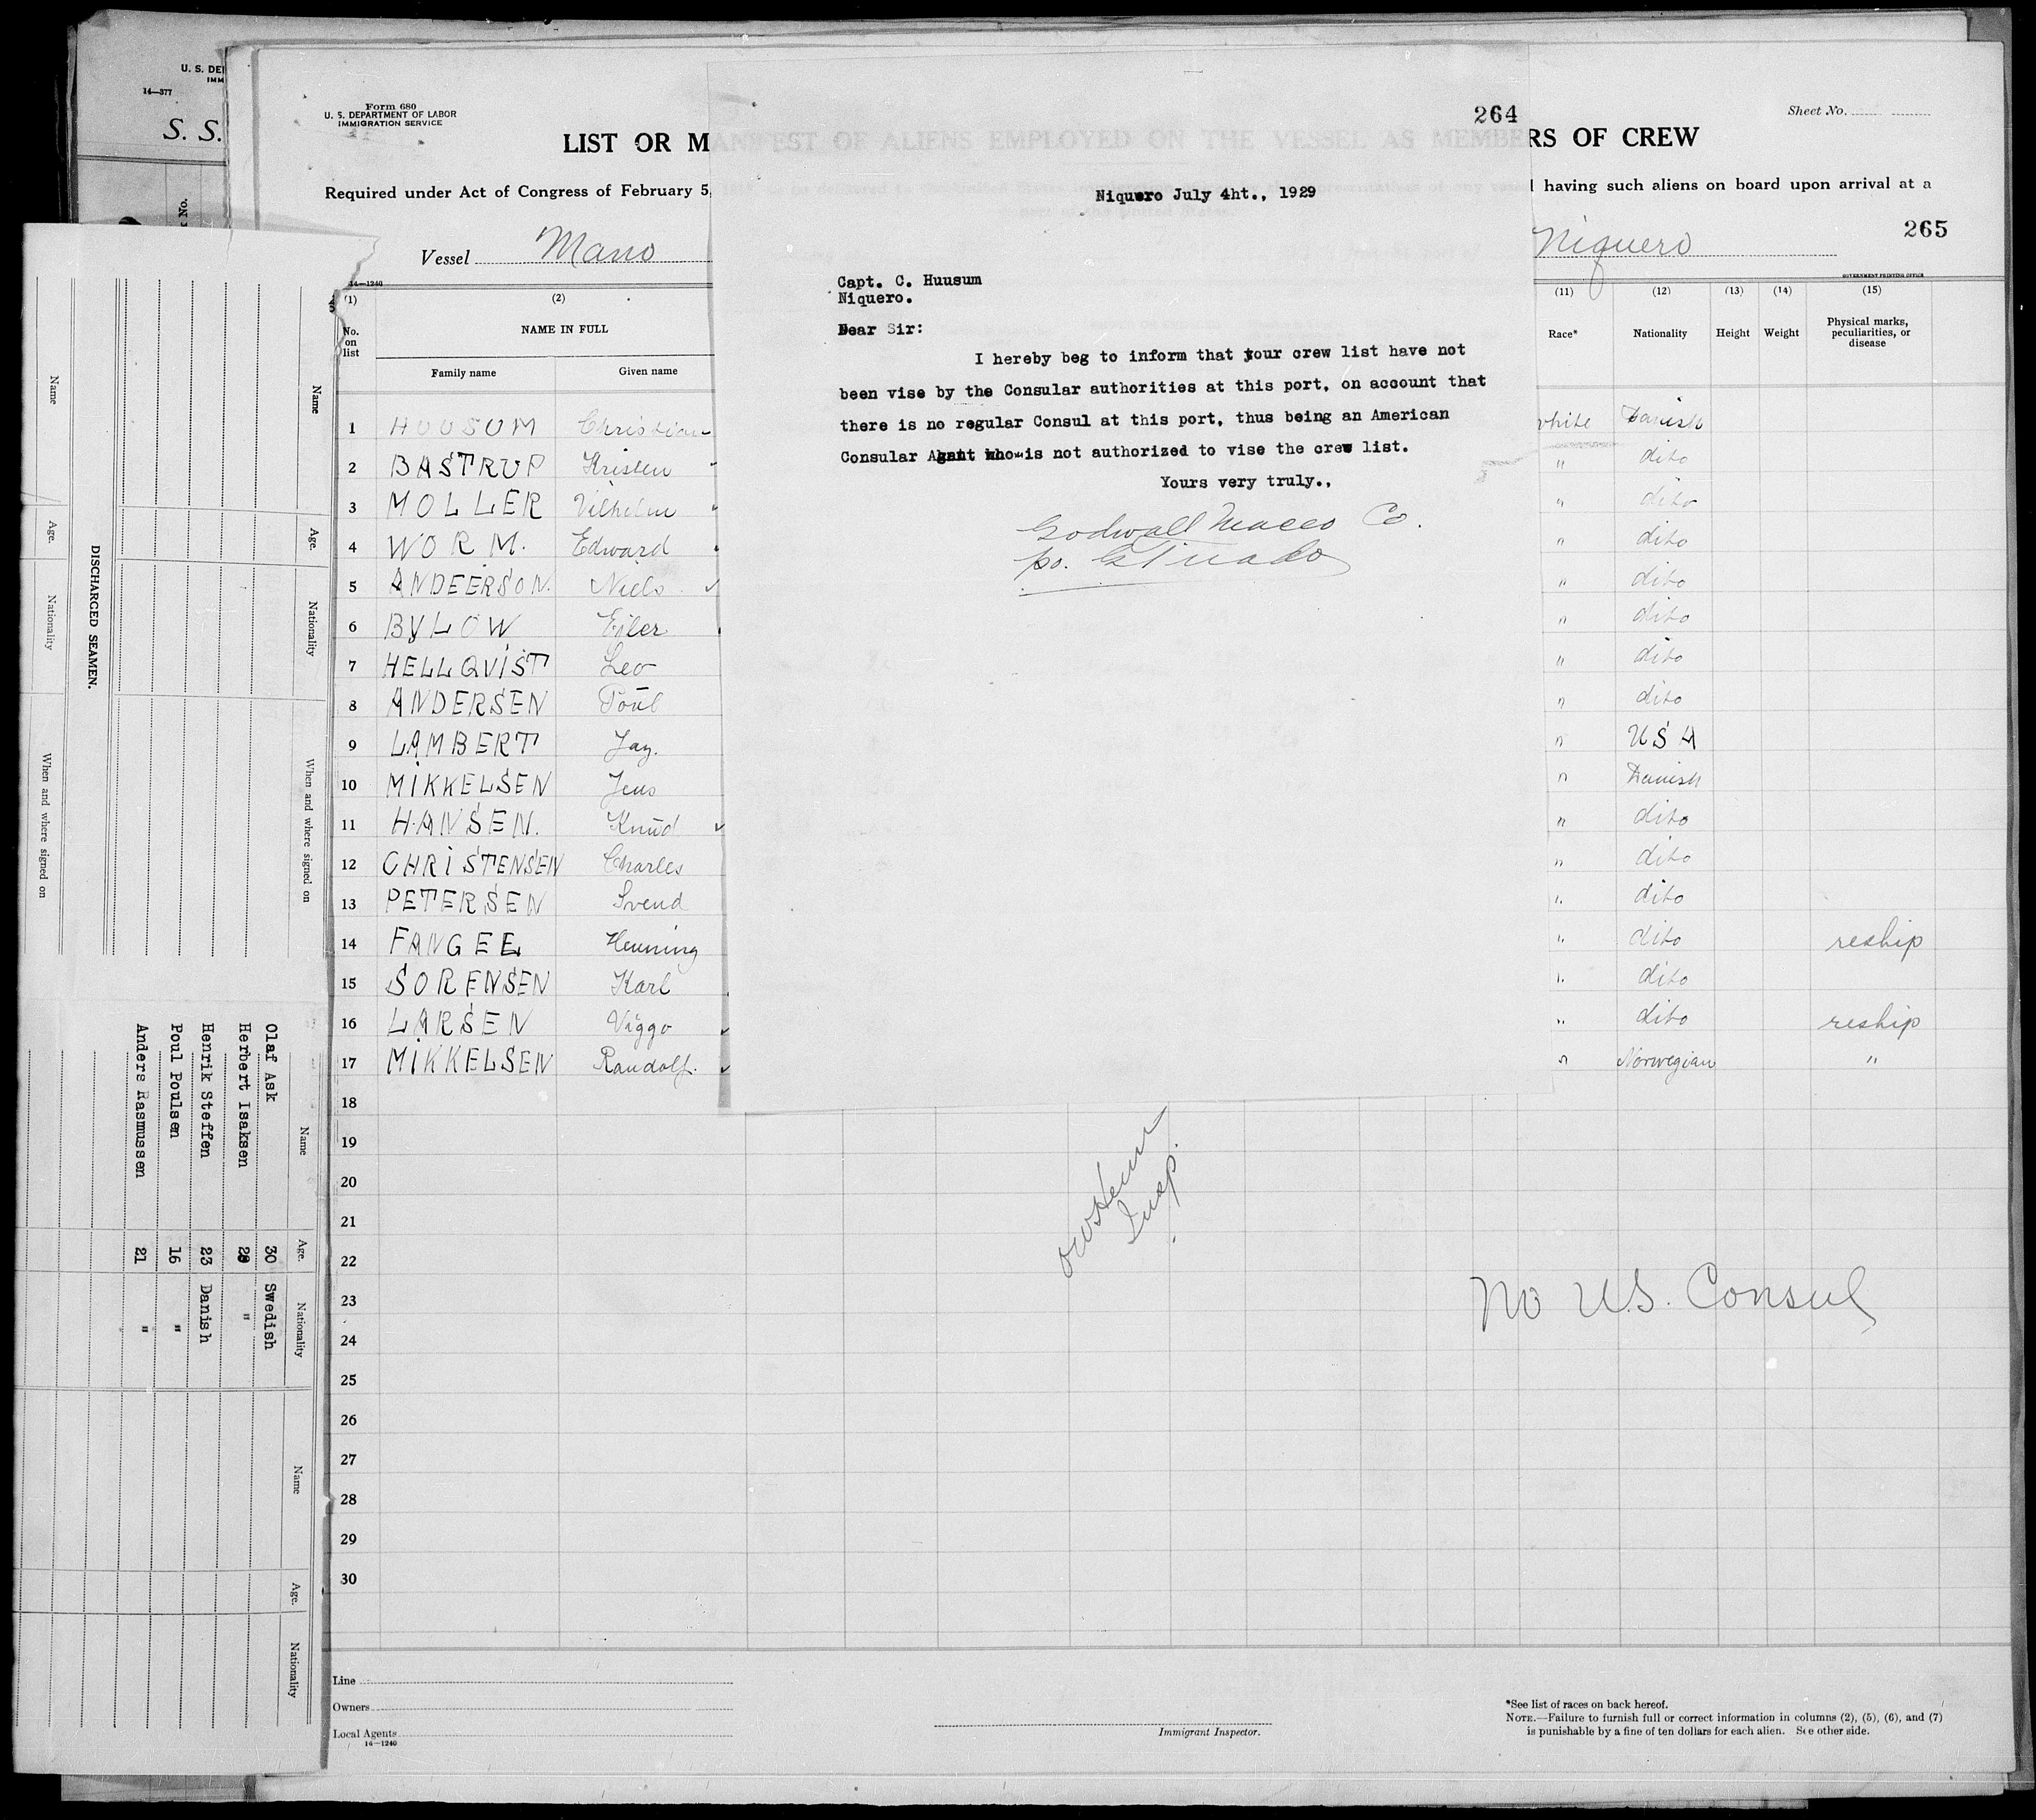 U. S. DE
IMM
14—377
S. S.
No.
Form 680
U. S. DEPARTMENT OF LABOR
IMMIGRATION SERVICE
Sheet No.
LIST OR M
ANIFEST OF ALIENS EMPLOYED ON THE VESSEL AS MEMBE
RS OF CREW
Required under Act of Congress of February 5,
having such aliens on board upon arrival at a
265
Vessel
Niquero
14—1240
GOVERNMENT PRINTING OFFICE
264
Niquero July 4ht., 1929
Capt. C. Huusum
Niquero.
Dear Sir:
I hereby beg to inform that your crew list have not
been vise by the Consular authorities at this port, on account that
there is no regular Consul at this port, thus being an American
Consular Agent who is not authorized to vise the crew list.
Yours very truly.,
Co.
po.
(1) (2) (11) (12) (13) (14) (15)
No. on list
NAME IN FULL
Family name Given name
Race* Nationality Height Weight Physical marks, peculiarities, or disease
1 HUUSUM Christian white Danish
2 BASTRUP Kristen " dito
3 MOLLER Vilhelm " dito
4 WORM. Edward " dito
5 ANDEERSON. Niels " dito
6 BYLOW Ejler " dito
7 HELLQVIST Leo " dito
8 ANDERSEN Poul " dito
9 LAMBERT Jay. " USA
10 MIKKELSEN Jens " Danish
11 HANSEN. Knud " dito
12 CHRISTENSEN Charles " dito
13 PETERSEN Svend " dito
14 FANGEL Henning " dito reship
15 SORENSEN Karl " dito
16 LARSEN Viggo " dito reship
17 MIKKELSEN Randolf. " Norwegian "
18
19
20
21
22
23
24
25
26
27
28
29
30
Insp.
No U.S. Consul
Line
Owners
Local Agents
14—1240
Immigrant Inspector.
*See list of races on back hereof.
NOTE.—Failure to furnish full or correct information in columns (2), (5), (6), and (7)
is punishable by a fine of ten dollars for each alien. See other side.
DISCHARGED SEAMEN.
Name Age. Nationality When and where signed on
Name Age. Nationality When and where signed on
Name Age. Nationality
Olaf Ask 30 Swedish
Herbert Isaksen "
Henrik Steffen 23 Danish
Poul Poulsen 16 "
Anders Rasmussen 21 "
Name Age. Nationality